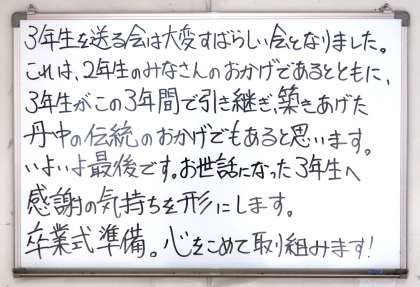 3年生を送る会は大変すばらしい会となりました。
これは、2年生のみなさんのおかげであるとともに、
3年生がこの3年間で引き継ぎ、築きあげた
丹中の伝統のおかげでもあると思います。
いよいよ最後です。お世話になった3年生へ
感謝の気持ちを形にします。
卒業式準備。心をこめて取組みます!